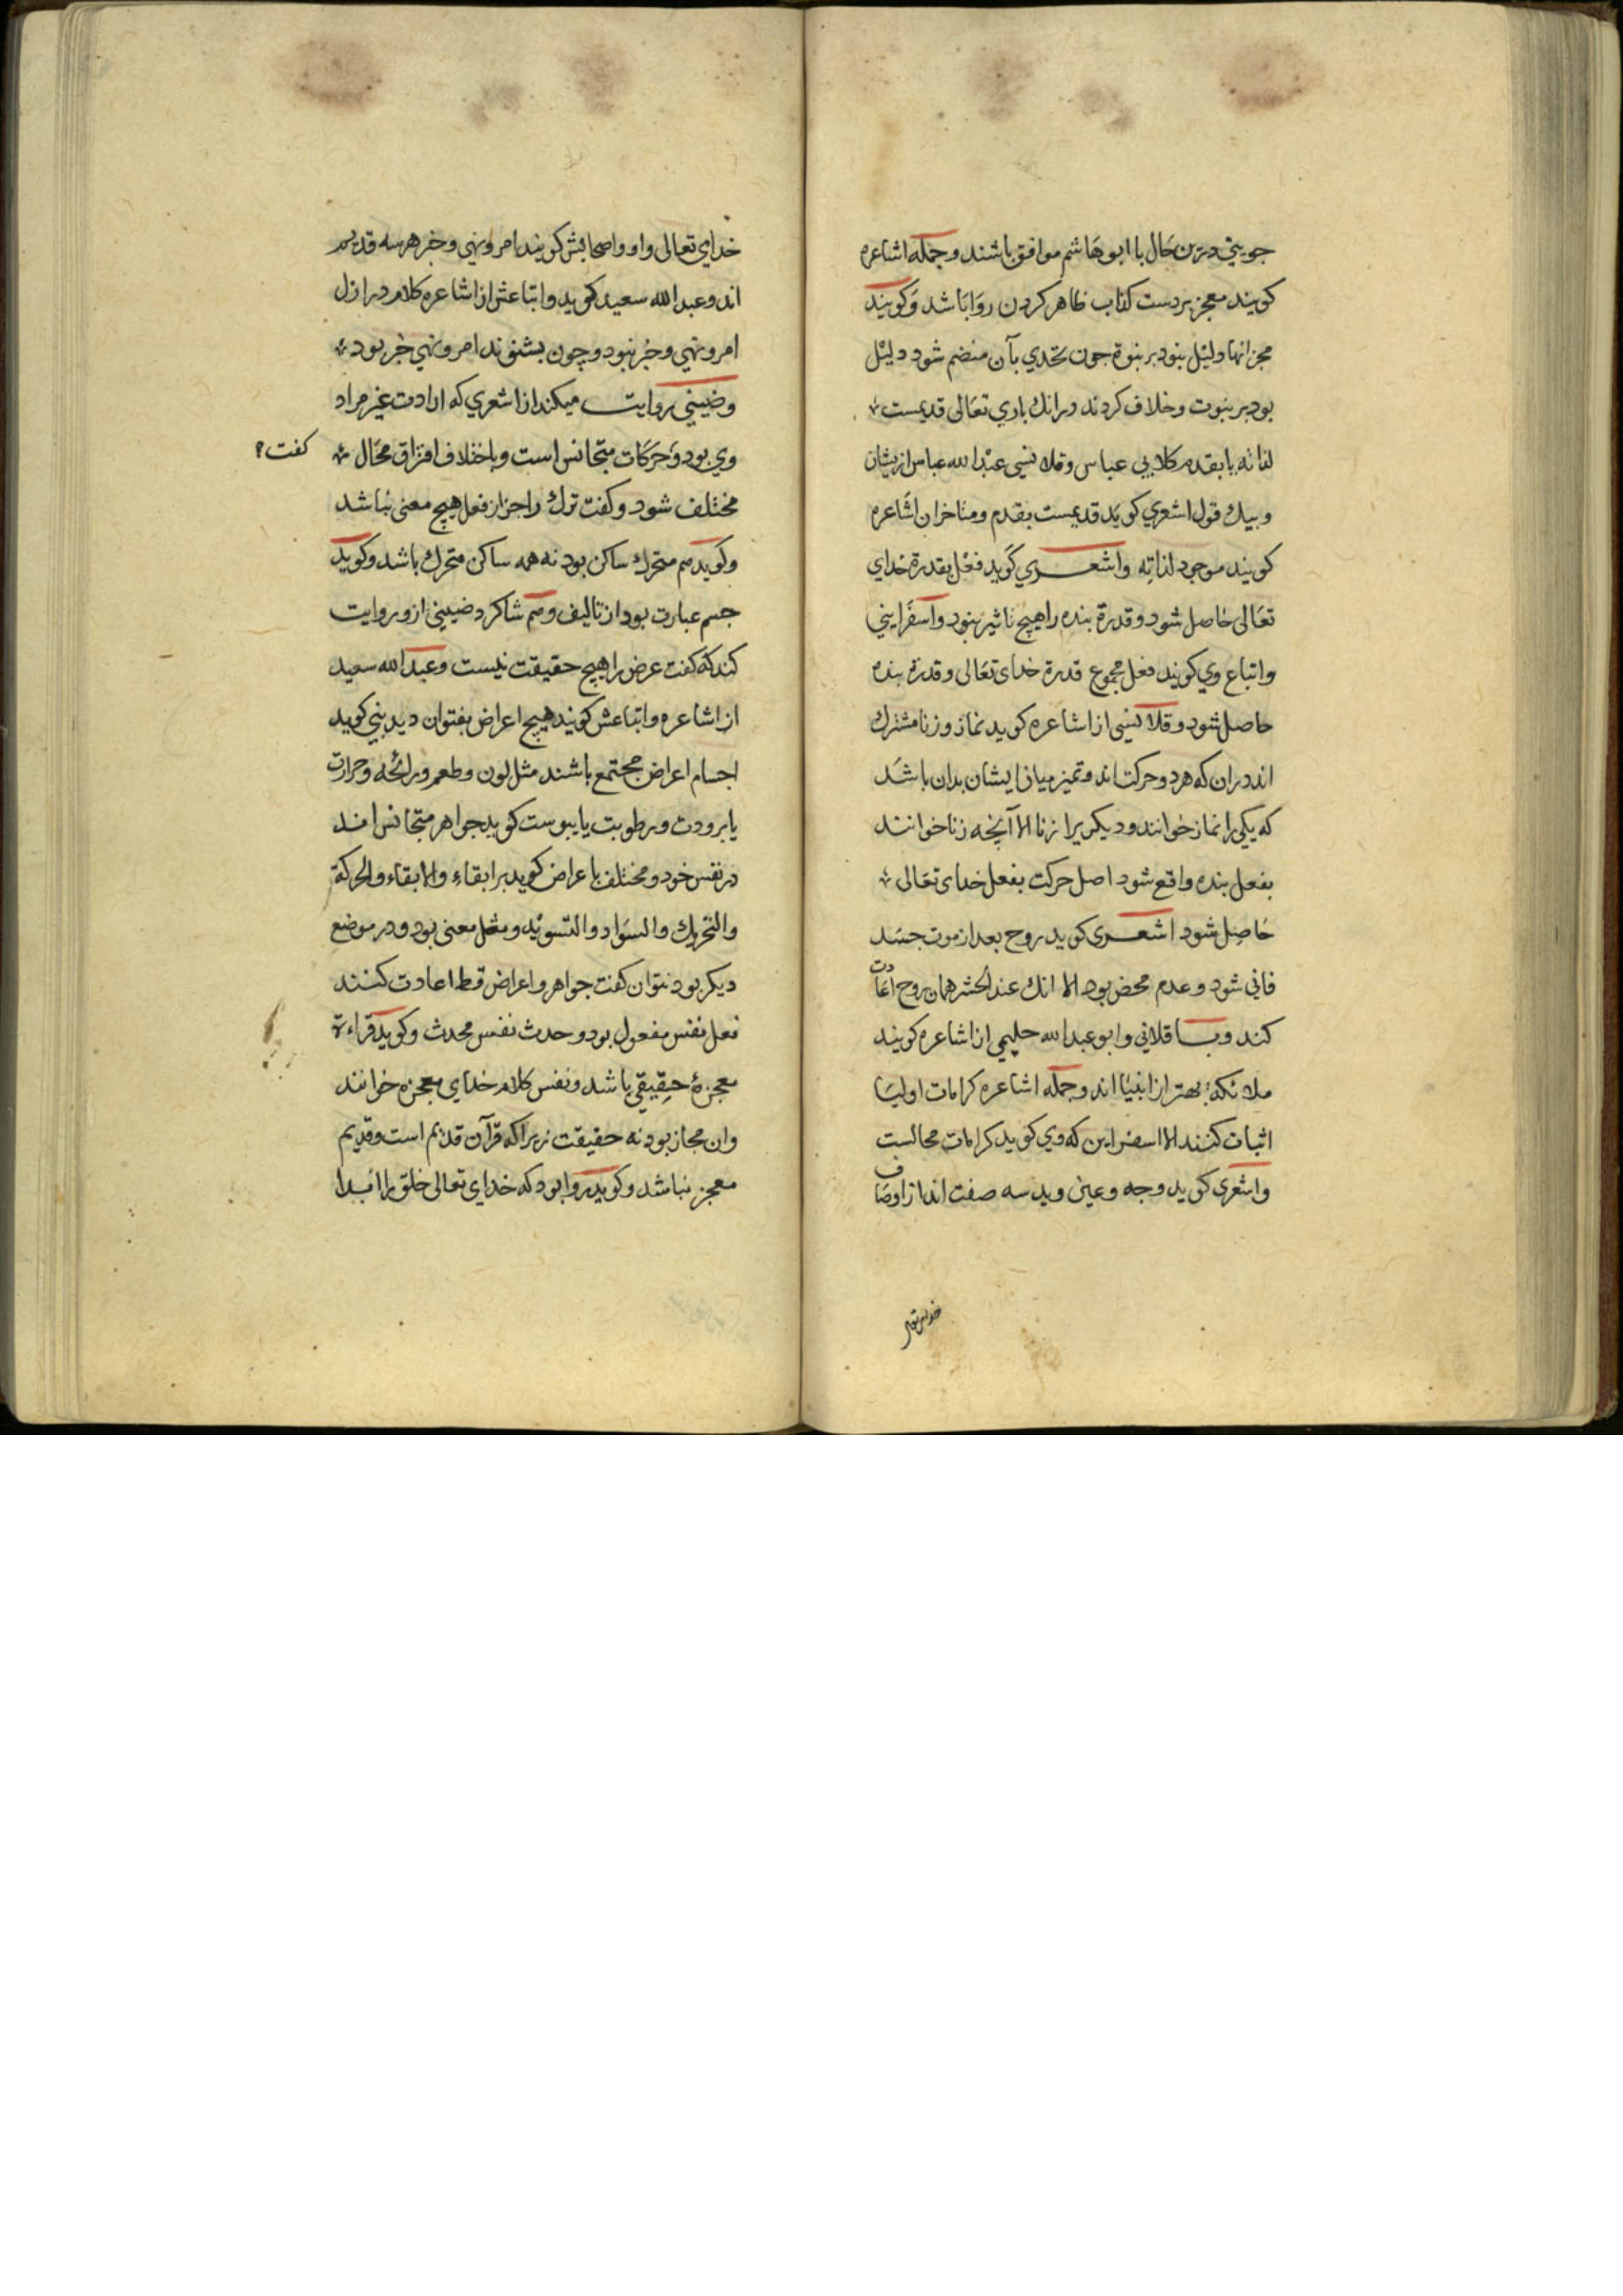 جويني درين حال با ابو هاشم موافق باشند و جمله اشاعره
كويند معجز بر دست كذاب ظاهر كردن روا باشد و كويند
معجز انها دليل بنود بر بنوة جون تحدي بآن منضم شود دليل
بود بر بنوت و خلاف كردند درانك باري تعالى قديمست
لذاته يا بقدم كلابي عباس و قلانسي عبد الله عباس ازيشان
و بيك قول اشعري كويد قديمست بقدم و متاخران اشاعره
كويند موجود لذاته واشعري كويد فعل بقدرة خداي
تعالى حاصل شود و قدرة بنده را هيچ تاثير بنود واسفرايني
واتباع وي كويند فعل مجموع قدرة خداى تعالى و قدرة بنده
حاصل شود و قلانسي از اشاعره كويد نماز و زنا مشترك
اند دران كه هر دو حركت اند و تميز ميان ايشان بدان باشد
كه يكي را نماز خوانند و ديكريرا زنا الا آنچه زنا خوانند
بفعل بنده واقع شود اصل حركت بفعل خداى تعالى
حاصل شود اشعرى كويد روح بعد از موت جسد
فاني شود و عدم محض بود الا انك عند الحشر همان روح اعادت
كند و باقلاني و ابو عبد الله حليمي از اشاعره كويند
ملائكة بهتر از انبيا اند و جمله اشاعره كرامات اوليا
اثبات كنند الا اسفراين كه وي كويد كرامات محالست
واشعرى كويد وجه و عين و يد سه صفت اند از اوصاف
خداى تعالى و او واصحابش كويند امر و نهي و خبر هر سه قديم
اند و عبد الله سعيد كويد و اتباعش از اشاعره كلام در ازل
امر و نهي و خبر نبود و چون بشنوند امر و نهي خبر بود
و ضيبني روايت ميكند از اشعري كه ارادت غير مراد
وي بود و حركات متجانس است و باختلاف افتراق محال
كفت
مختلف شود و كفت ترك را جز از فعل هيچ معنى نباشد
و كويد هم متحرك ساكن بود نه همه ساكن متحرك باشد و كويد
جسم عبارت بود از تاليف و هم شاكرد ضيبني ازو روايت
كند كه كفت عرض را هيچ حقيقت نيست و عبد الله سعيد
از اشاعره و اتباعش كويند هيچ اعراض بنتوان ديد بني كويد
اجسام اعراض مجتمع باشند مثل لون و طعم و رائحه و حرارت
يا برودت و رطوبت يا يبوست كويد جواهر متجانس اند
در نفس خود و مختلف باعراض كويد برابقاء والابقاء والحركة
والتحريك والسواد والتسويد و مثل معنى بود و در موضع
ديكر بود نتوان كفت جواهر و اعراض قط اعادت كنند
فعل نفس مفعول بود و حدث نفس محدث و كويد قراءة
معجزۀ حقيقي باشد و نفس كلام خداي معجزه خوانند
وان مجاز بود نه حقيقت زيرا كه قرآن قديم است و قديم
معجز نباشد و كويد روا بود كه خداى تعالى خلق را ابتدا